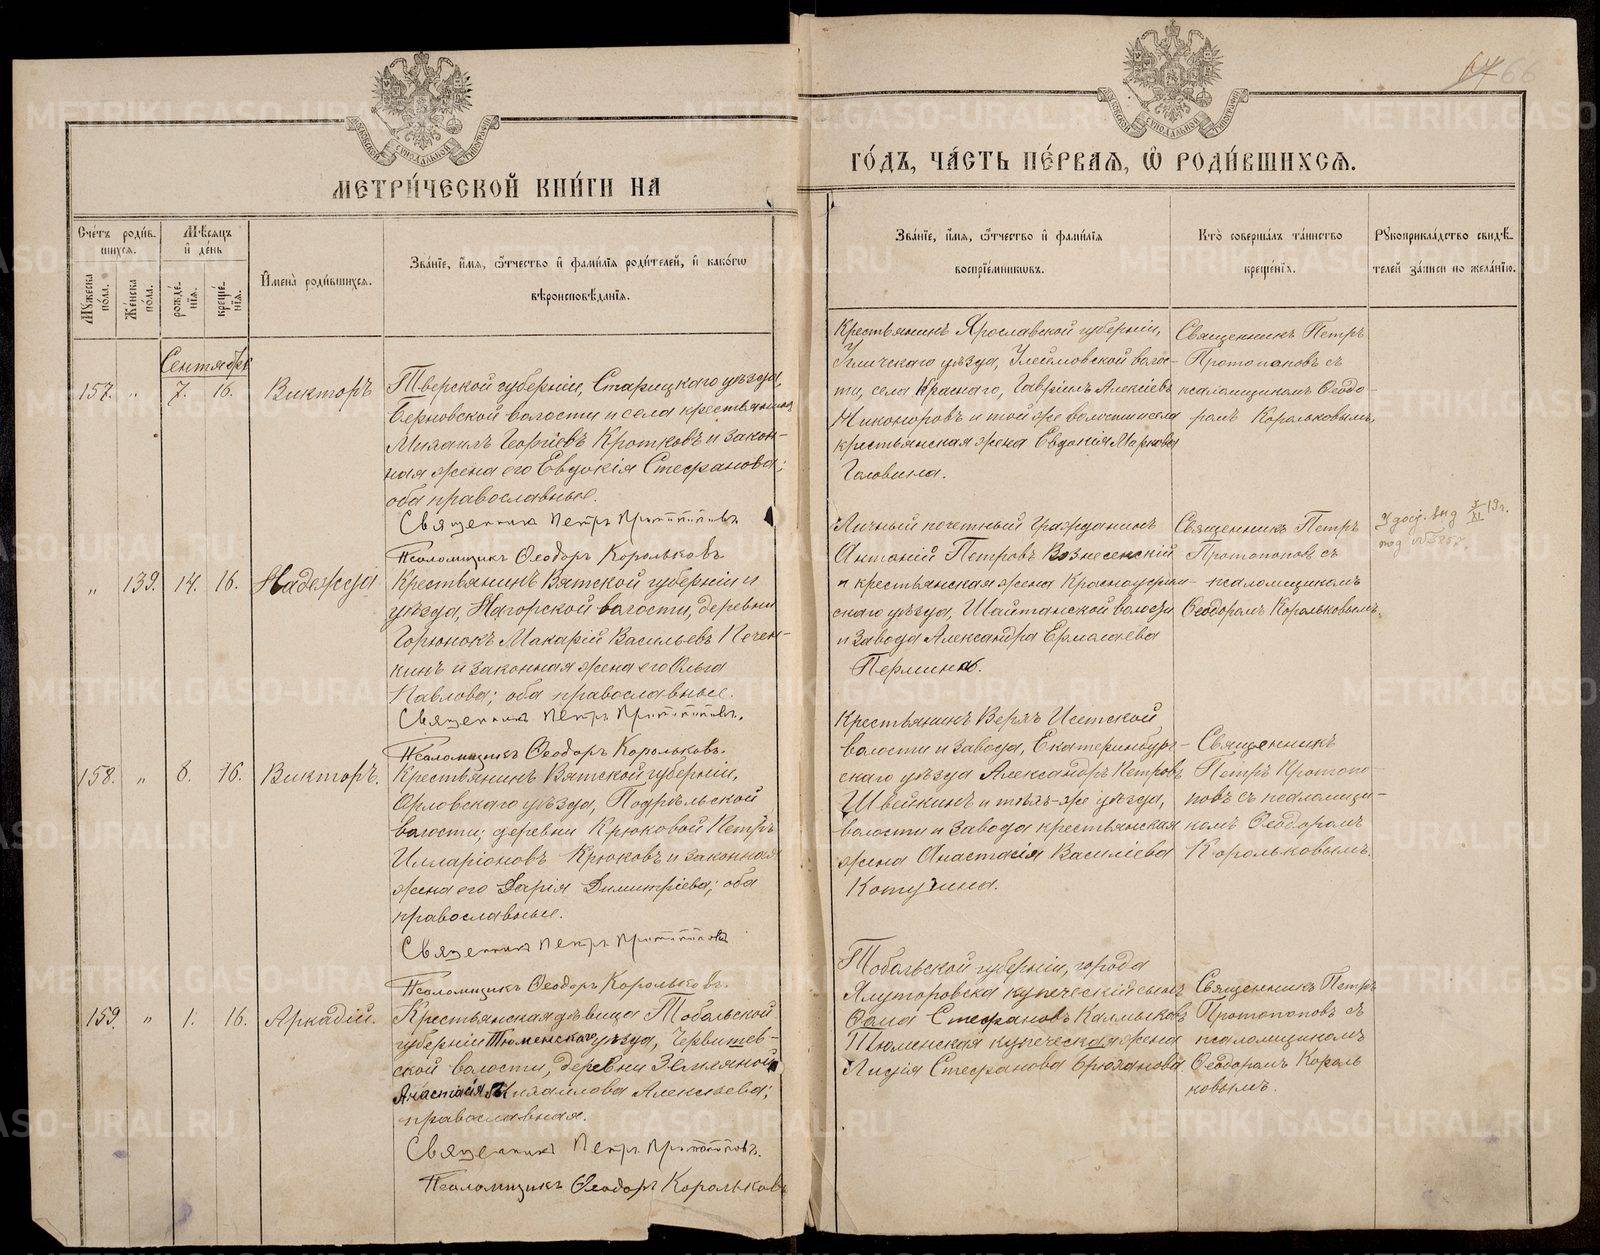 66
МЕТРИ́ЧЕСКОЙ КНИ́ГИ НА
ГО́ДЪ, ЧА́СТЬ ПЕ́РВАѦ, Ѡ҆ РОДИ́ВШИХСѦ.
Сче́тъ роди́в-
шихся.
Мѣ́сяцъ
и҆ де́нь
Му́жеска по́ла.
Же́нска по́ла.
рожде́нія.
креще́нія.
И҆мена̀ роди́вшихся.
Зва́ніе, и҆́мя, ѻ҆́тчество и҆ фами́лія роди́телей, и҆ како́гѡ
вѣроисповѣ́данія.
Зва́ніе, и҆́мя, ѻ҆́тчество и҆ фами́лія
воспріе́мниковъ.
Кто̀ соверша́лъ та́инство
креще́нія.
Рукоприкла́дство свидѣ́-
телей за́писи по жела́нію.
Сентябрь
157. „ 7. 16. Викторъ
Тверской губерніи, Старицкаго уѣзда,
Берновской волости и села крестьянинъ
Михаилъ Георгіевъ Кротковъ и закон-
ная жена его Евдокія Стефанова;
оба православные.
Священникъ Петръ Протопоповъ
Псаломщикъ Ѳеодоръ Корольковъ.
Крестьянинъ Ярославской губерніи,
Угличскаго уѣзда, Улеймовской волос-
ти, села Краснаго, Гавріилъ Алексіевъ
Никоноровъ и той же волости и села
крестьянская жена Евдокія Маркова
Головина.
Священникъ Петръ
Протопоповъ съ
псаломщикомъ Ѳеодо-
ромъ Корольковымъ.
„ 139. 14. 16. Надежда
Крестьянинъ Вятской губерніи и
уѣзда, Нагорской волости, деревни
Горюнокъ Макарій Васильевъ Печен-
кинъ и законная жена его Ольга
Павлова; оба православные.
Священникъ Петръ Протопоповъ.
Псаломщикъ Ѳеодоръ Корольковъ.
Личный почетный гражданинъ
Антоній Петровъ Вознесенскій
и крестьянская жена Красноуфим-
скаго уѣзда, Шайтанской волости
и завода Александра Ермолаева
Пермина.
Священникъ Петръ
Протопоповъ съ
псаломщикомъ
Ѳеодоромъ Корольковымъ.
158. „ 8. 16. Викторъ.
Крестьянинъ Вятской губерніи,
Орловскаго уѣзда, Подрѣльской
волости, деревни Крюковой Петръ
Илларіоновъ Крюковъ и законная
жена его Дарія Димитріева; оба
православные.
Священникъ Петръ Протопоповъ
Псаломщикъ Ѳеодоръ Корольковъ.
Крестьянинъ Верхъ Исетской
волости и завода, Екатеринбург-
скаго уѣзда Александръ Петровъ
Швейкинъ и тѣхъ-же уѣзда,
волости и завода крестьянская
жена Анастасія Василіева
Котугина.
Священникъ
Петръ Протопо-
повъ съ псаломщи-
комъ Ѳеодоромъ
Корольковымъ.
159. „ 1. 16. Аркадій.
Крестьянская дѣвица Тобольской
губерніи Тюменскаго уѣзда, Червишев-
ской волости, деревни Земляной
Анастасія Михайлова Алексѣева;
православная.
Священникъ Петръ Протопоповъ.
Псаломщикъ Ѳеодоръ Корольковъ
Тобольской губерніи, города
Ялуторовска купеческій сынъ
Ѳома Стефановъ Калмыковъ
Тюменская купеческая жена
Лидія Стефанова Брюханова
Священникъ Петръ
Протопоповъ съ
псаломщикомъ
Ѳеодоромъ Король
ковымъ.
METRIKI.GASO-URAL.RU